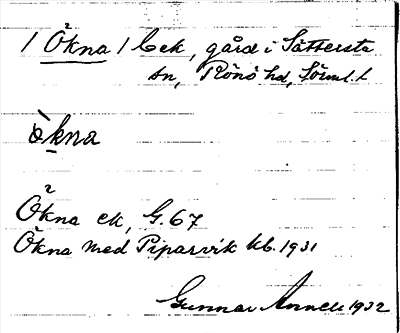 / Ökna / ek, gård i Sättersta
sn, Rönö hd, Sörml. l.
òkna
Ökna ek, G. 67
Ökna med Piparvik kb. 1931
Gunnar Annell 1932